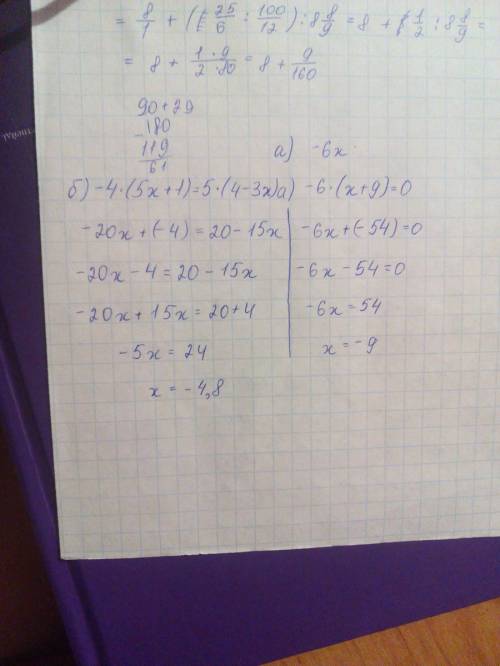 = 8/1 + (25/6 : 100/12) : 8 8/9 = 8 + 1/2 : 8 8/9 =
= 8 + 1·9/2·80 = 8 + 9/160
90+29
-180
119
61
а) -6x
б) -4·(5x+1)=5·(4-3x)
-20x+(-4)=20-15x
-20x-4=20-15x
-20x+15x=20+4
-5x=24
x=-4,8
а) -6·(x+9)=0
-6x+(-54)=0
-6x-54=0
-6x=54
x=-9